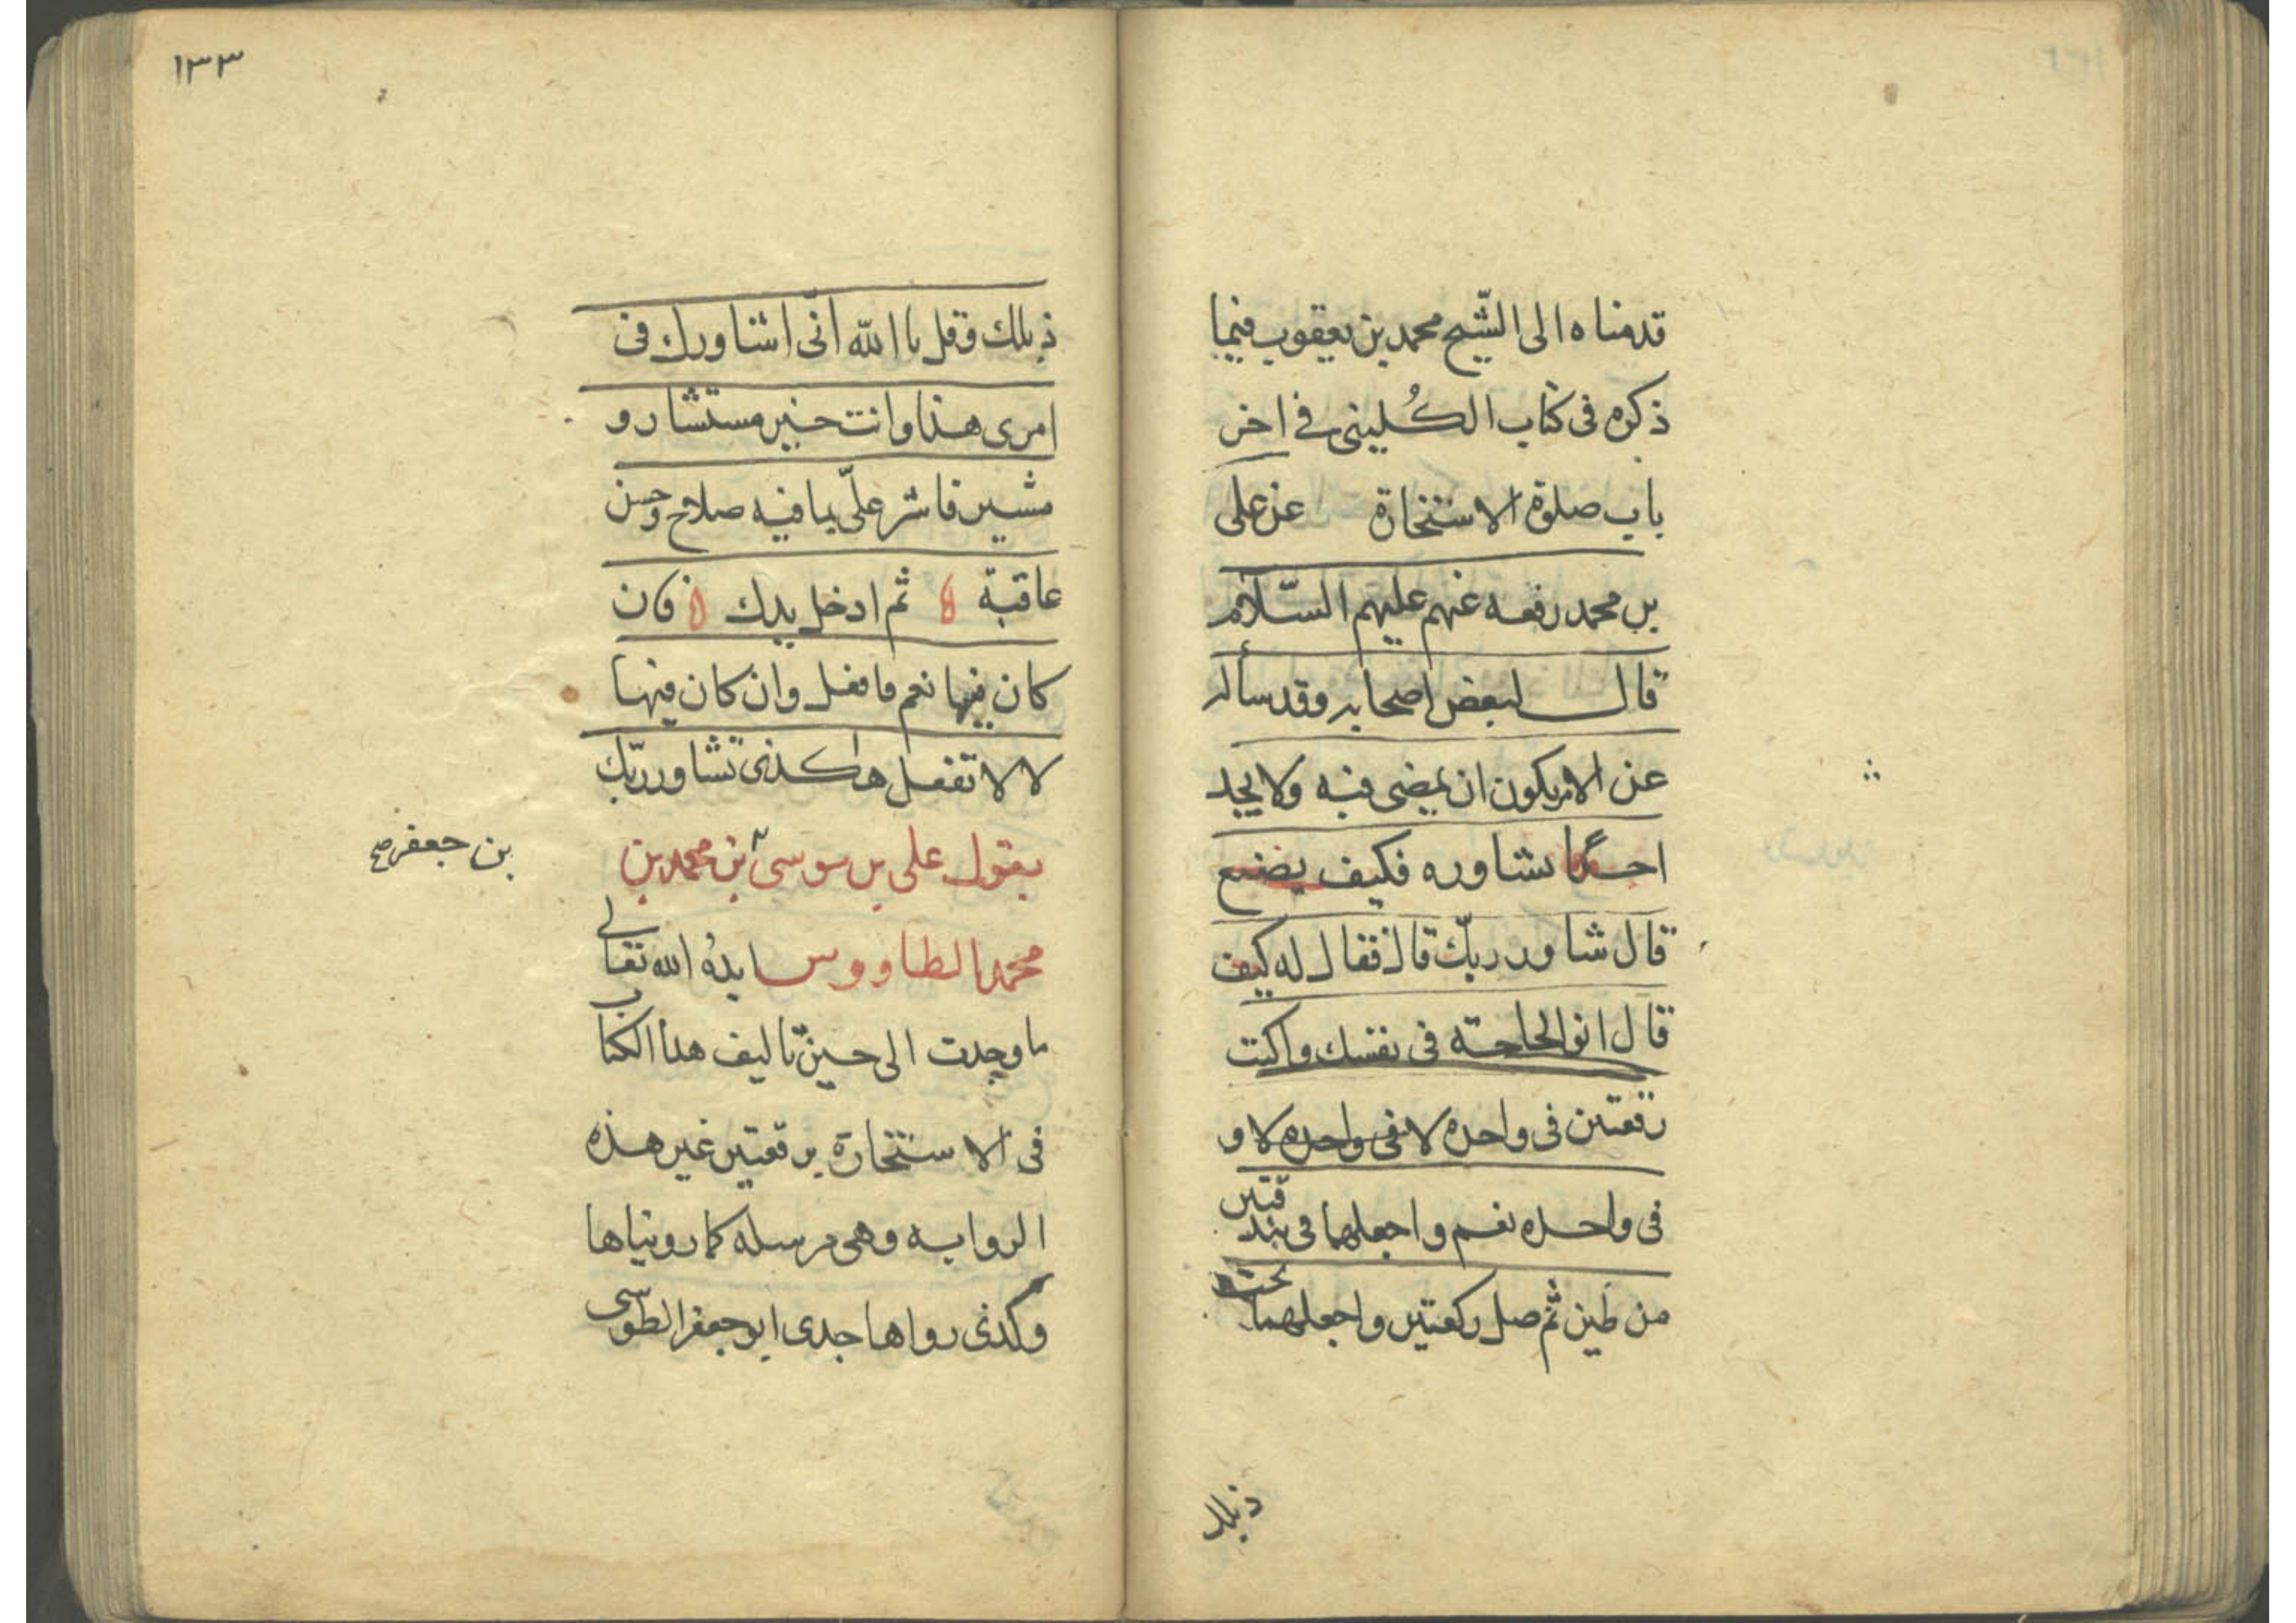 قدمناه الى الشيخ محمد بن يعقوب فيما
ذكره فى كتاب الكُلينى في اخر
باب صلوة الاستخارة عن على
بن محمد رفعه عنهم عليهم السّلام
قال لبعض اصحابه وقد سأله
عن الامر يكون ان يمضى فيه ولا يجد
احداً يشاوره فكيف يصنع
قال شاور ربّك قال فقال له كيف
قال انو الحاجة فى نفسك واكتب
رقعتين فى واحده لا فى واحده لا و
فى واحده نعم واجعلهما فى بندقتين
من طين ثم صل ركعتين واجعلهما تحت
ذيلك
١٣٣
ذيلك وقل يا الله انّى اشاورك فى
امرى هذا وانت خير مستشار و
مشير فاشر علىّ بما فيه صلاح وحسن
عاقبة ثم ادخل يدك فان
كان فيها نعم فافعل وان كان فيها
لا لا تفعل هاكذى تشاور ربّك
يقول على بن موسى بن محمد بن
بن جعفر صح
محمد الطاووس ايدهُ الله تعالى
ما وجدت الى حين تاليف هذا الكتاب
فى الاستخارة برقعتين غير هذه
الروايه وهى مرسله كما رويناها
وكذى رواها جدى ابو جعفر الطوسى